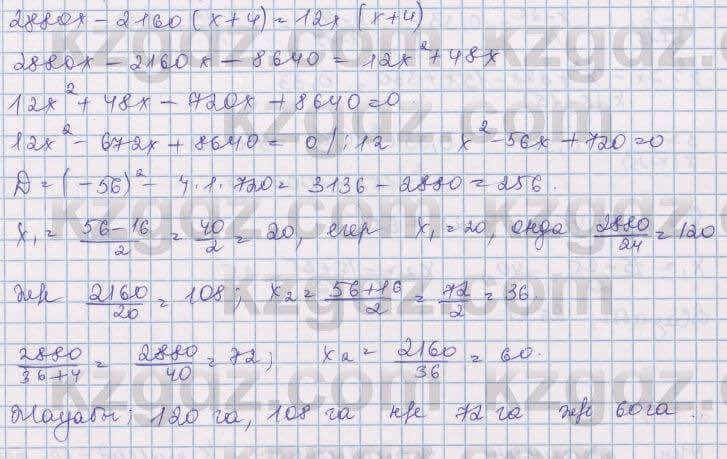 2880x - 2160 (x+4) = 12x (x+4)
2880x - 2160x - 8640 = 12x² + 48x
12x² + 48x - 720x + 8640 = 0
12x² - 672x + 8640 = 0 / :12 x² - 56x + 720 = 0
D = (-56)² - 4·1·720 = 3136 - 2880 = 256.
x₁ = \frac{56-16}{2} = \frac{40}{2} = 20, егер x₁ = 20, онда \frac{2880}{24} = 120
және \frac{2160}{20} = 108; x₂ = \frac{56+16}{2} = \frac{72}{2} = 36.
\frac{2880}{36+4} = \frac{2880}{40} = 72; x₂ = \frac{2160}{36} = 60.
Жауабы: 120 га, 108 га не 72 га және 60 га.
kzgdz.com